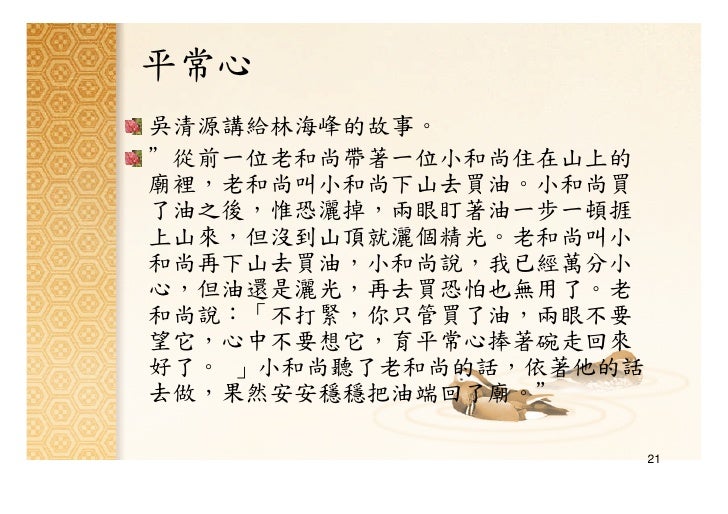 平常心
吳清源講給林海峰的故事。
”從前一位老和尚帶著一位小和尚住在山上的
廟裡，老和尚叫小和尚下山去買油。小和尚買
了油之後，惟恐灑掉，兩眼盯著油一步一頓捱
上山來，但沒到山頂就灑個精光。老和尚叫小
和尚再下山去買油，小和尚說，我已經萬分小
心，但油還是灑光，再去買恐怕也無用了。老
和尚說：「不打緊，你只管買了油，兩眼不要
望它，心中不要想它，育平常心捧著碗走回來
好了。 」小和尚聽了老和尚的話，依著他的話
去做，果然安安穩穩把油端回了廟。”
21